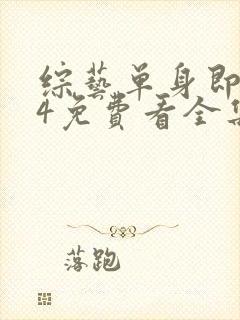 綜藝單身即
4免費看全集
落跑